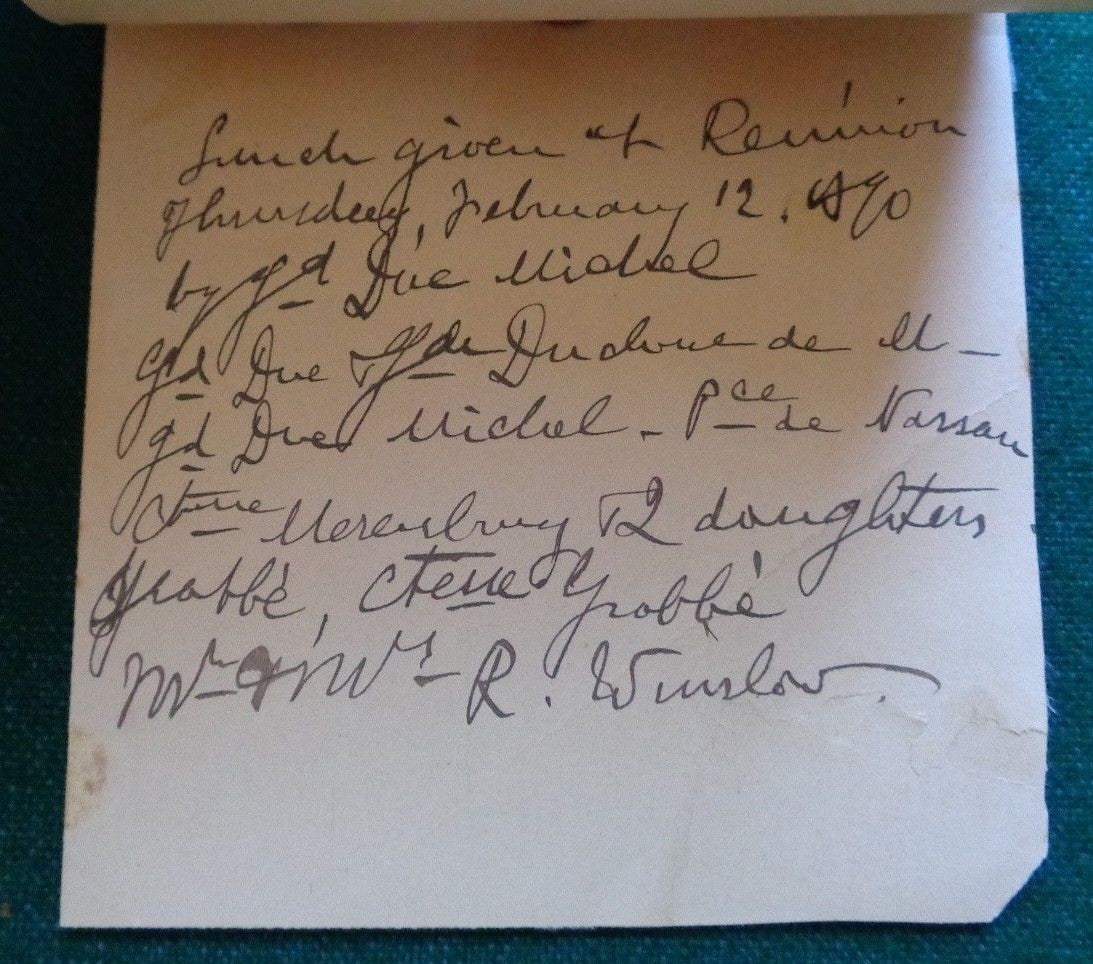 Lunch given at Réunion
Thursday, February 12.
by Gd Duc Michel
Gd Duc & Gde Duchesse de M -
gd Duc Michel - Pce de Nassau
Ctesse Merenberg & 2 daughters
Grabbé, Ctesse Grabbé
Mr & Mrs R. Winslow.